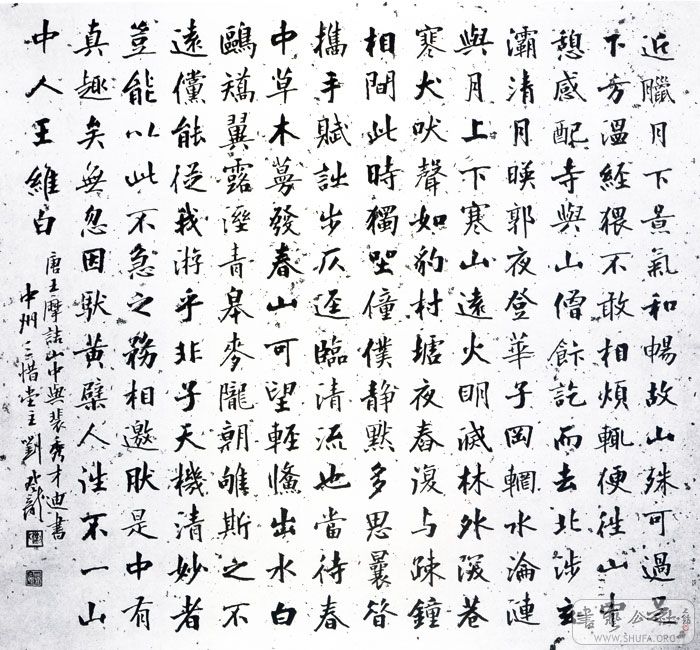 近臘月下景氣和暢故山殊可過足
下方溫經猥不敢相煩輒便往山中
憩感配寺與山僧飰訖而去北涉玄
灞清月暎郭夜登華子岡輞水淪漣
與月上下寒山遠火明滅林外深巷
寒犬吠聲如豹村墟夜舂復与疎鐘
相間此時獨坐僮僕静默多思曩昔
攜手賦詩步仄逕臨清流也當待春
中草木蔓發春山可望輕鯈出水白
鷗矯翼露溼青皋麥隴朝雊斯之不
遠儻能從我游乎非子天機清妙者
豈能以此不急之務相邀肰是中有
真趣矣無忽因馱黃檗人往不一山
中人王維白
唐王摩詰山中與裴秀才迪書
中州三惜堂主劉
WWW.SHUFA.ORG